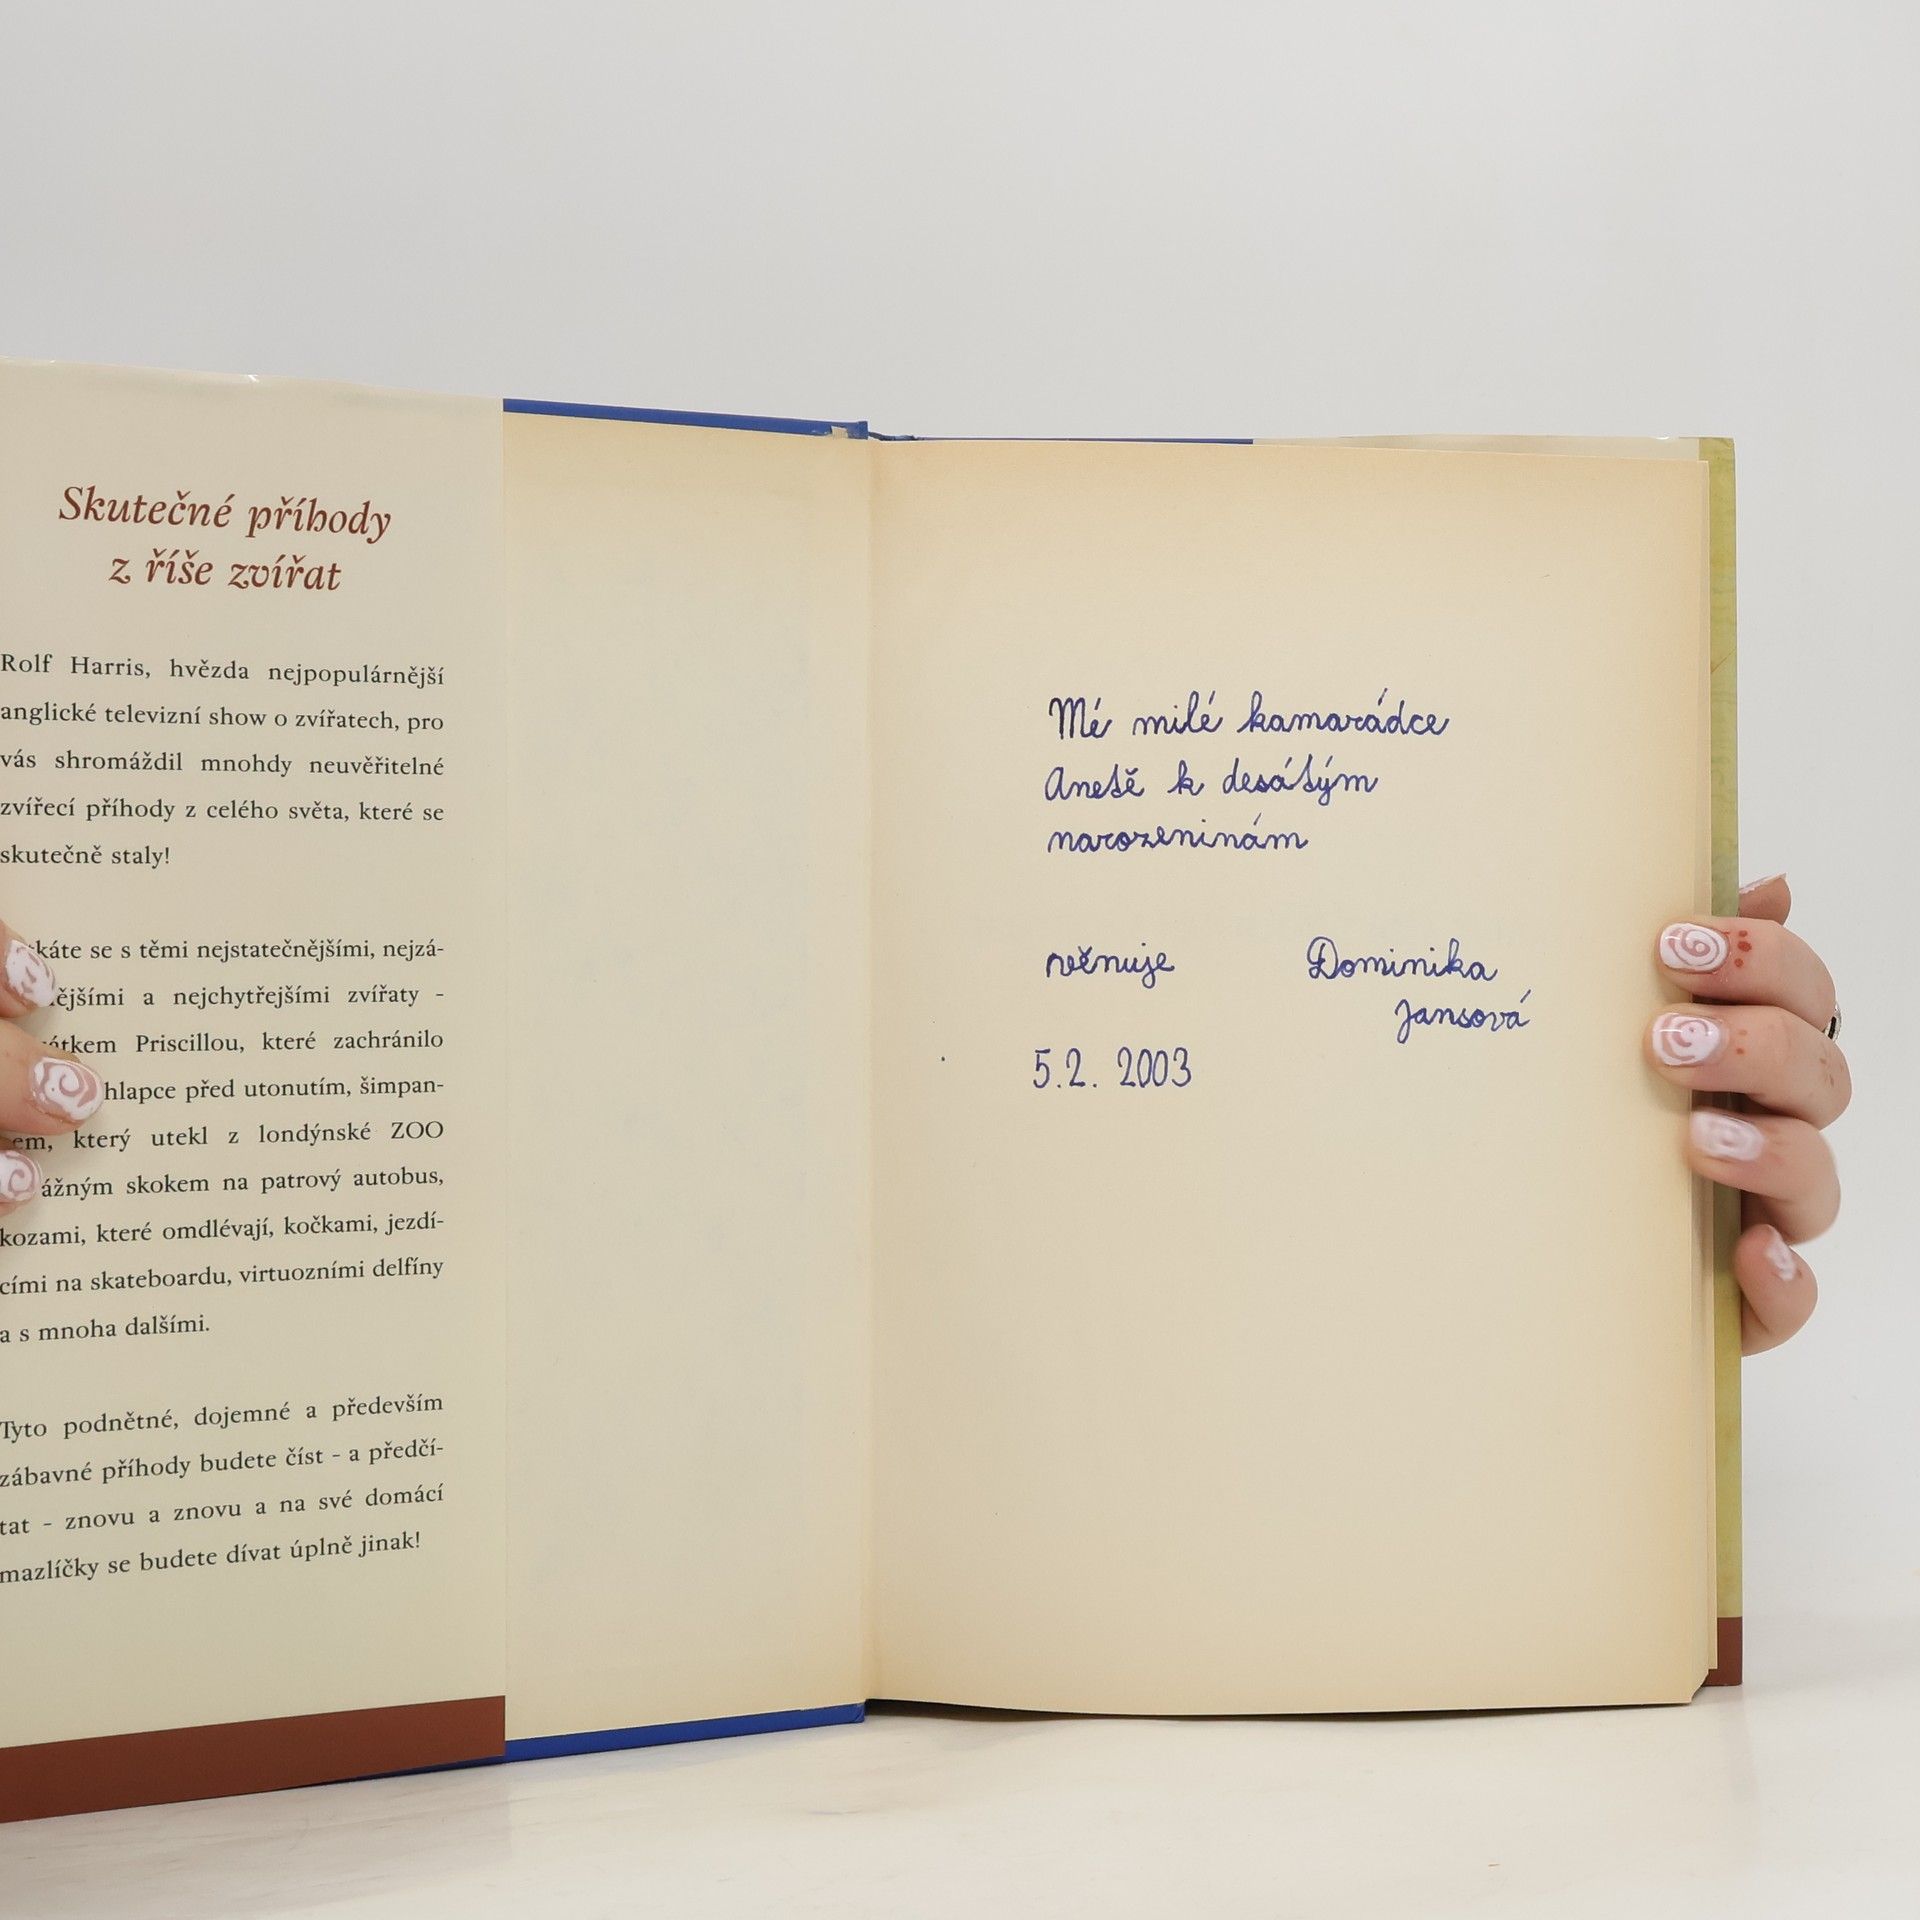 Skutečné příhody
z říše zvířat
Rolf Harris, hvězda nejpopulárnější
anglické televizní show o zvířatech, pro
vás shromáždil mnohdy neuvěřitelné
zvířecí příhody z celého světa, které se
skutečně staly!
se s těmi nejstatečnějšími, nejzá-
a nejchytřejšími zvířaty -
Priscillou, které zachránilo
před utonutím, šimpan-
který utekl z londýnské ZOO
skokem na patrový autobus,
kozami, které omdlévají, kočkami, jezdí-
cími na skateboardu, virtuozními delfíny
a s mnoha dalšími.
Tyto podnětné, dojemné a především
zábavné příhody budete číst - a předčí-
tat - znovu a znovu a na své domácí
mazlíčky se budete dívat úplně jinak!
Mé milé kamarádce
Anetě k desátým
narozeninám
věnuje Dominika
Jansová
5.2. 2003